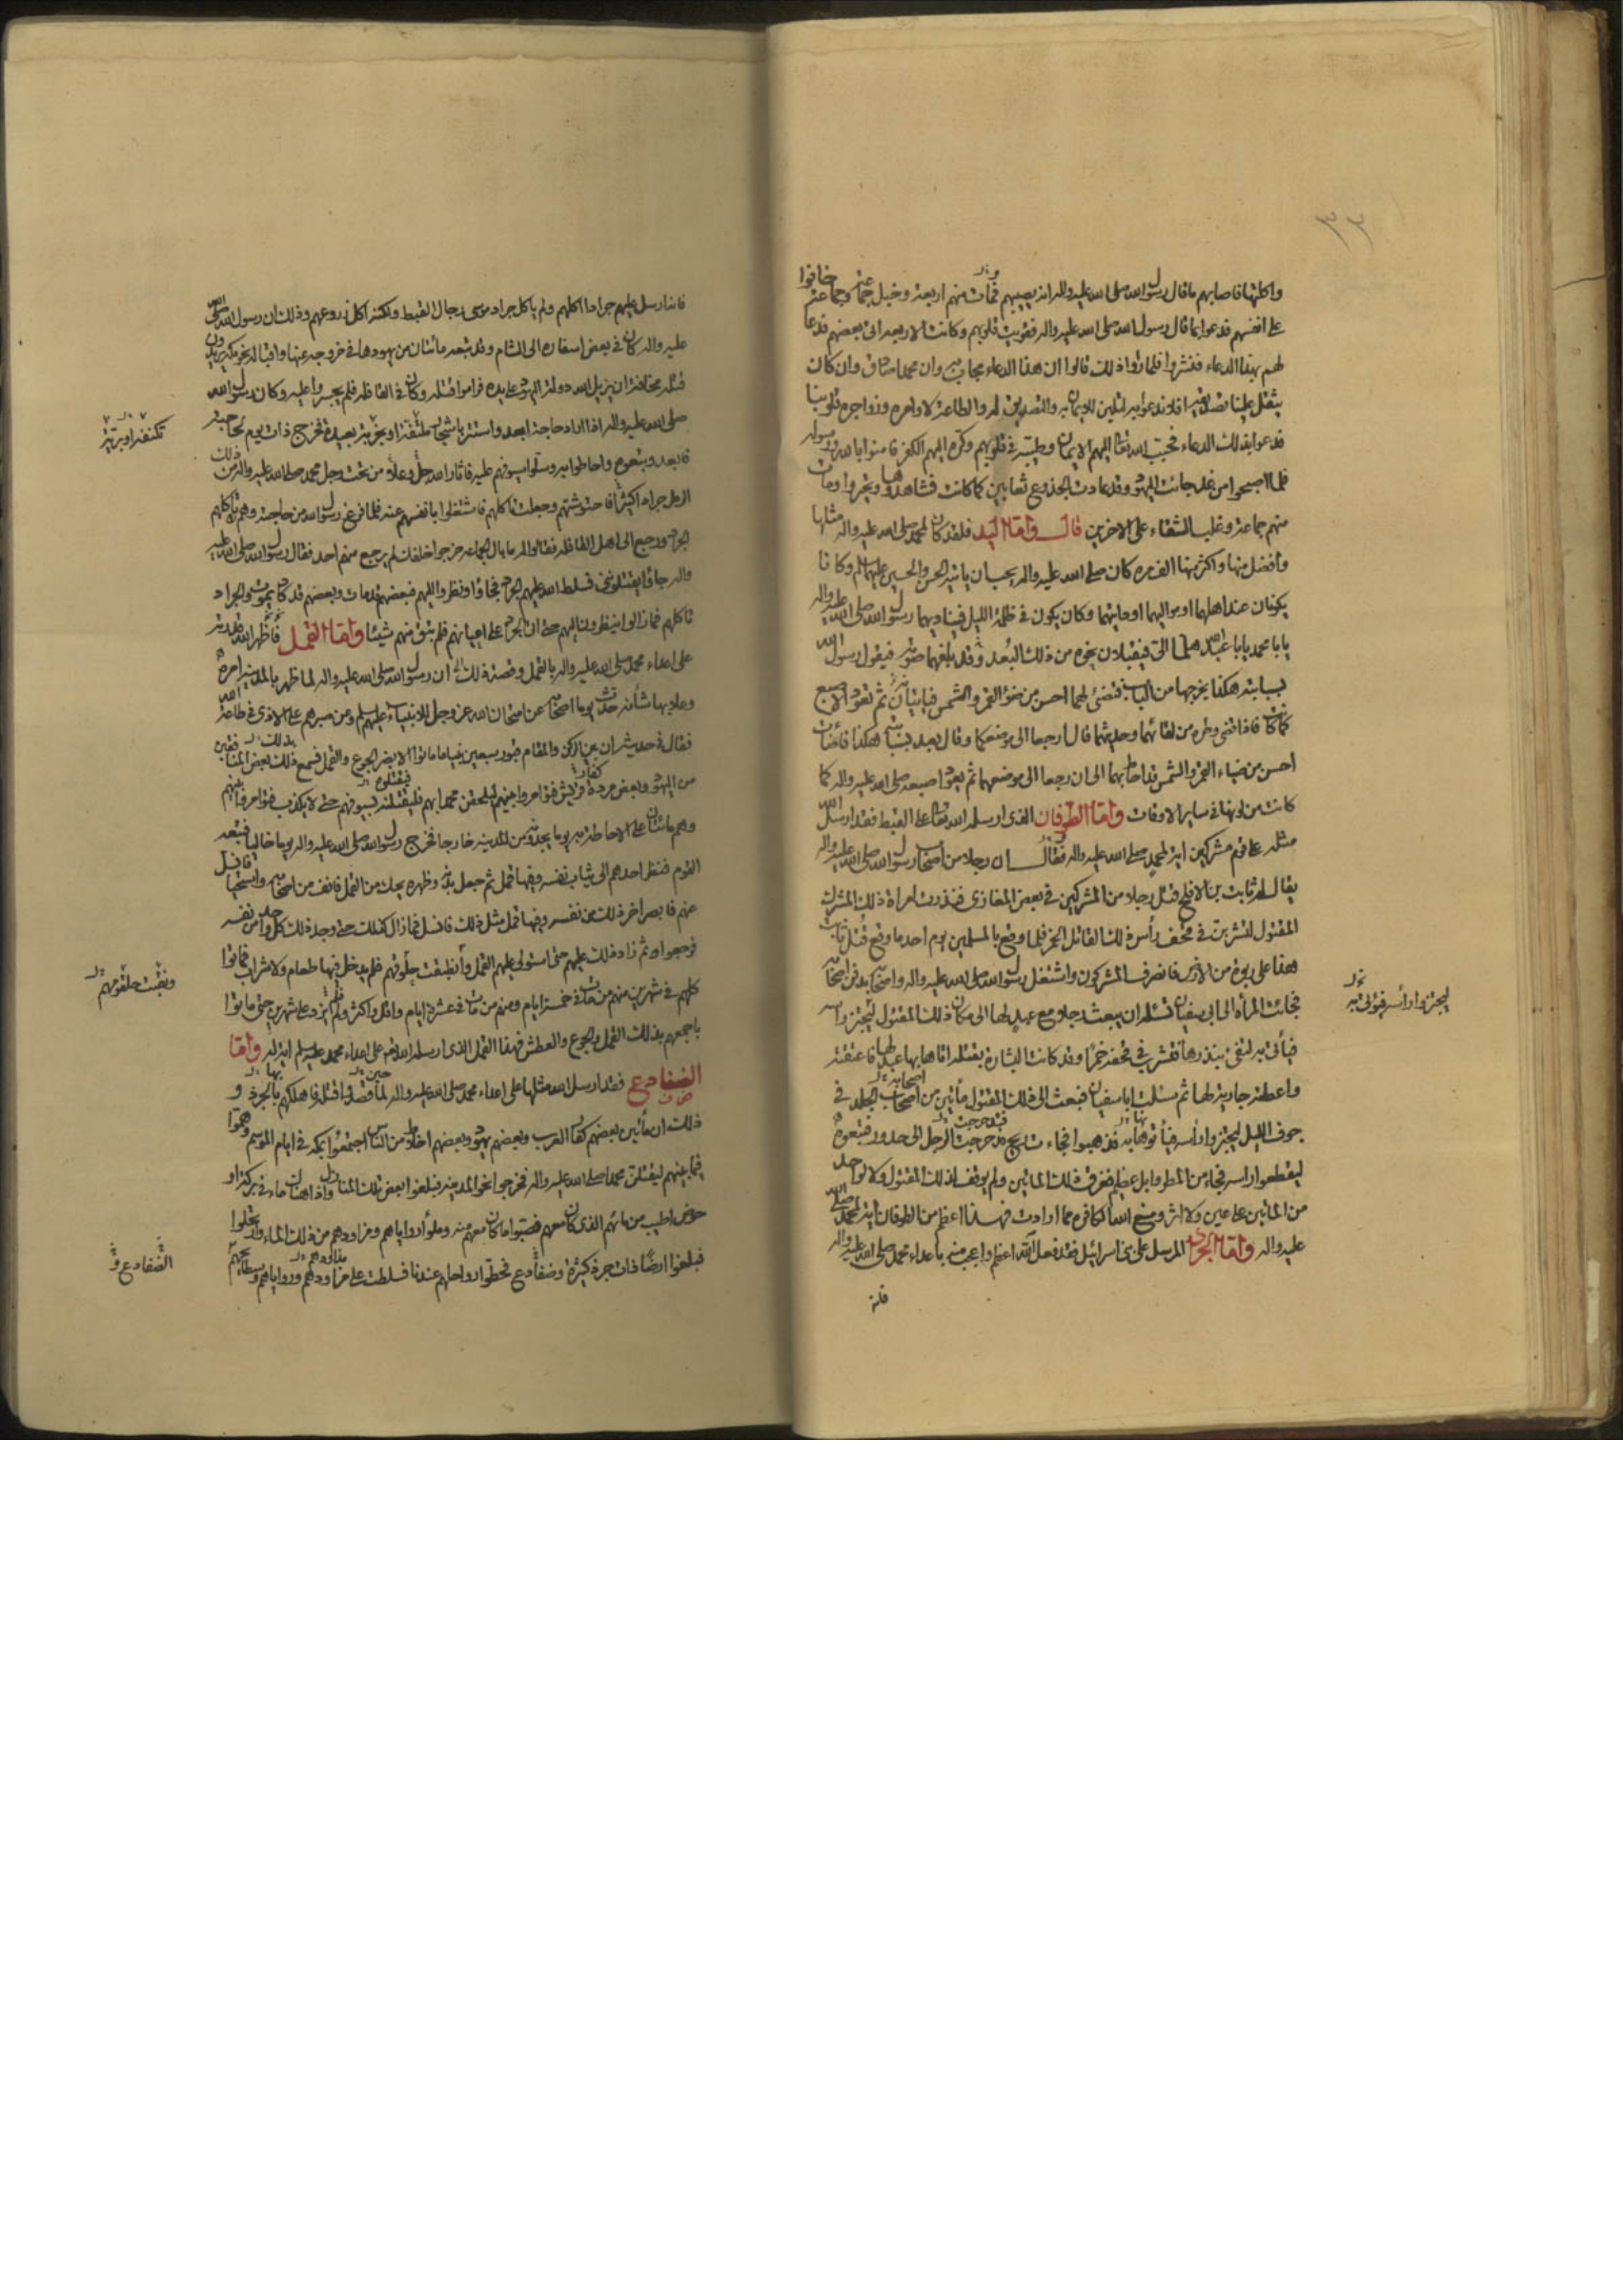 ٣٣
واكلتها فاصابهم ما قال رسول الله صلى الله عليه واله انه يصيبهم فمات منهم اربعة وخبل جماعة وجماعة خافوا
على انفسهم فدعوا بما قال رسول الله صلى الله عليه واله فقويت قلوبهم وكانت الاربعة اتى بعضهم فدعا
لهم بهذا الدعاء فنشروا فلما راوا ذلك قالوا ان هذا الدعاء مجاب به وان محمدا صادق وان كان
يثقل علينا تصديقه افلا ندعوا به لتلين للايمان به والتصديق له والطاعة لاوامره وزواجره قلوبنا
فدعوا بذلك الدعاء فحبب الله تعالى اليهم الايمان وطيبه في قلوبهم وكره اليهم الكفر فامنوا بالله ورسوله
فلما اصبحوا من غد جائت اليهود وقد عادت الجذوع ثعابين كما كانت فشاهدوها وتحيروا ومات
منهم جماعة وغلب الشقاء على الاخرين قال واما اليد فلقد كان لمحمد صلى الله عليه واله مثلها
وافضل منها واكثر منها الف مرة كان صلى الله عليه واله يحب ان ياتيه الحسن والحسين عليهما السلم وكانا
يكونان عند اهلهما او مواليهما او دايتهما وكان يكون في ظلمة الليل فيناديهما رسول الله صلى الله عليه واله
يا با محمد يا با عبد الله هلما الي فيقبلان نحوه من ذلك البعد وقد بلغهما صوته فيقول رسول الله
بسبابته هكذا يخرجها من الباب فتضئ لهما احسن من ضوء القمر والشمس فياتيان ثم تعود الاصبع
كما كانت فاذا قضى وطره من لقائهما وحديثهما قال ارجعا الى موضعكما وقال بعد بسبابته هكذا فاضاءت
احسن من ضياء القمر والشمس قد احاط بهما الى ان رجعا الى موضعهما ثم يعود اصبعه صلى الله عليه واله كما
كانت من لونها في ساير الاوقات واما الطوفان الذى ارسله الله تعالى على القبط فقد ارسل الله
مثله على قوم مشركين اية لمحمد صلى الله عليه واله فقال ان رجلا من اصحاب رسول الله صلى الله عليه واله
يقال له ثابت بن الافلح قتل رجلا من المشركين في بعض المغازى فنذرت امراة ذلك المشرك
المقتول لتشربن في قحف رأس ذلك القاتل الخمر فلما وقع بالمسلمين يوم احد ما وقع قتل ثابت
هذا على ربوة من الارض فانصرف المشركون واشتغل رسول الله صلى الله عليه واله واصحابه بدفن اصحابه
فجائت المرأة الى ابى سفيان تسئله ان يبعث رجلا مع عبد لها الى مكان ذلك المقتول ليجتز رأسه
ليجتز وارأسه فيؤتى به
فيأتى به لتفى بنذرها فتشرب في قحفه خمرا وقد كانت البشارة بقتله اتاها بها عبد لها فاعتقته
واعطته جارية لها ثم سئلت ابا سفيان فبعث الى ذلك المقتول مأتين من اصحاب الجلد في
اصحابه
جوف الليل ليجتزوا رأسه فيأتوها به فذهبوا فجاءت ريح فدحرجت الرجل الى حدور فتبعوه
ليقطعوا راسه فجاء من المطر وابل عظيم فغرق ذلك المائتين ولم يوقف لذلك المقتول ولا لواحد
من المائتين على عين ولا اثر ومنع الله الكافرة مما ارادت فهذا اعظم من الطوفان اية لمحمد صلى الله
عليه واله واما الجراد المرسل على بنى اسرائيل فقد فعل الله اعظم واعجب منه باعداء محمد صلى الله عليه واله
فانه
فانه ارسل عليهم جرادا اكلهم ولم ياكل جراد موسى رجال القبط ولكنه اكل زروعهم وذلك ان رسول الله صلى
عليه واله كان في بعض اسفاره الى الشام وقد تبعه مائتان من يهودها في خروجه عنها واقباله نحو مكة يريدون
قتله مخافة ان يزيل الله دولة اليهود على يده فراموا قتله وكان في القافلة فلم يجسروا عليه وكان رسول الله
صلى الله عليه واله اذا اراد حاجة ابعد واستتر باشجار ملتفة او بخربة بعيدة فخرج ذات يوم لحاجته
تكنفه او برية
فابعد وتبعوه واحاطوا به وسلوا سيوفهم عليه فاثار الله جل وعلا من تحت رجل محمد صلى الله عليه واله من ذلك
الرمل جرادا كثيرا فاحتوشتهم وجعلت تاكلهم فاشتغلوا بانفسهم عنه فلما فرغ رسول الله من حاجته وهم ياكلهم
الجراد ورجع الى اهل القافلة فقالوا له ما بال الجماعة خرجوا خلفك لم يرجع منهم احد فقال رسول الله صلى الله عليه
واله جاؤا يقتلونى فسلط الله عليهم الجراد فجاؤا ونظروا اليهم فبعضهم قد مات وبعضهم قد كاد يموت والجراد
تاكلهم فما زالوا ينظرون اليهم حتى اتى الجراد على اعيانهم فلم تبق منهم شيئا واما القمل فاظهر الله قدرته
على اعداء محمد صلى الله عليه واله بالقمل وقصة ذلك ان رسول الله صلى الله عليه واله لما ظهر بالمدينة امره
وعلا بها شأنه حدث يوما اصحابه عن امتحان الله عز وجل للانبياء عليهم السلم وعن صبرهم على الاذى في طاعة الله
فقال في حديثه ان بين الركن والمقام قبور سبعين نبيا ما ماتوا الا بضر الجوع والقمل فسمع ذلك بعض المنافقين
بذلك
من اليهود وبعض مردة كفار قريش فتوامروا بينهم ليلحقن محمدا بهم فليقتلنه بسيوفهم حتى لا يكذب فتوامروا بينهم
وهم مائتان على الاحاطة به يوما يجدونه من المدينة خارجا فخرج رسول الله صلى الله عليه واله يوما خاليا فتبعه
القوم فنظر احدهم الى ثياب نفسه وفيها قمل ثم جعل بدنه وظهره يحك من القمل فانف من اصحابه واستحيا
فانسل
عنهم فابصر اخر ذلك من نفسه وفيها قمل مثل ذلك فانسل فما زال كذلك حتى وجد ذلك كل واحد من نفسه
فرجعوا ثم زاد ذلك عليهم حتى استولى عليهم القمل وانطبقت حلوقهم فلم يدخل فيها طعام ولا شراب فماتوا
ونقبت حلقومهم
كلهم في شهرين منهم من مات في خمسة ايام ومنهم من مات في عشرة ايام واقل واكثر ولم يزد على شهرين حتى ماتوا
باجمعهم بذلك القمل والجوع والعطش فهذا القمل الذى ارسله الله تعالى على اعداء محمد عليه السلم اية له واما
الضفادع فقد ارسل الله مثلها على اعداء محمد صلى الله عليه واله لما قصدوا قتله فاهلكهم بالجرذ و
ذلك ان مأتين بعضهم كفار العرب وبعضهم يهود وبعضهم اخلاط من الناس اجتمعوا بمكة في ايام الموسم وهموا
فيما بينهم ليقتلن محمدا صلى الله عليه واله فخرجوا نحو المدينة فبلغوا بعض تلك المنازل واذا هناك ماء في بركة او
حوض اطيب من مائهم الذى كان معهم فصبوا ما كان معهم منه وملأوا رواياهم ومزاودهم من ذلك الماء وارتحلوا
فبلغوا ارضا ذات جرذ كثيرة وضفادع فحطوا رواحلهم عندها فسلطت على مزاودهم ورواياهم وسطائحهم
الضفادع و